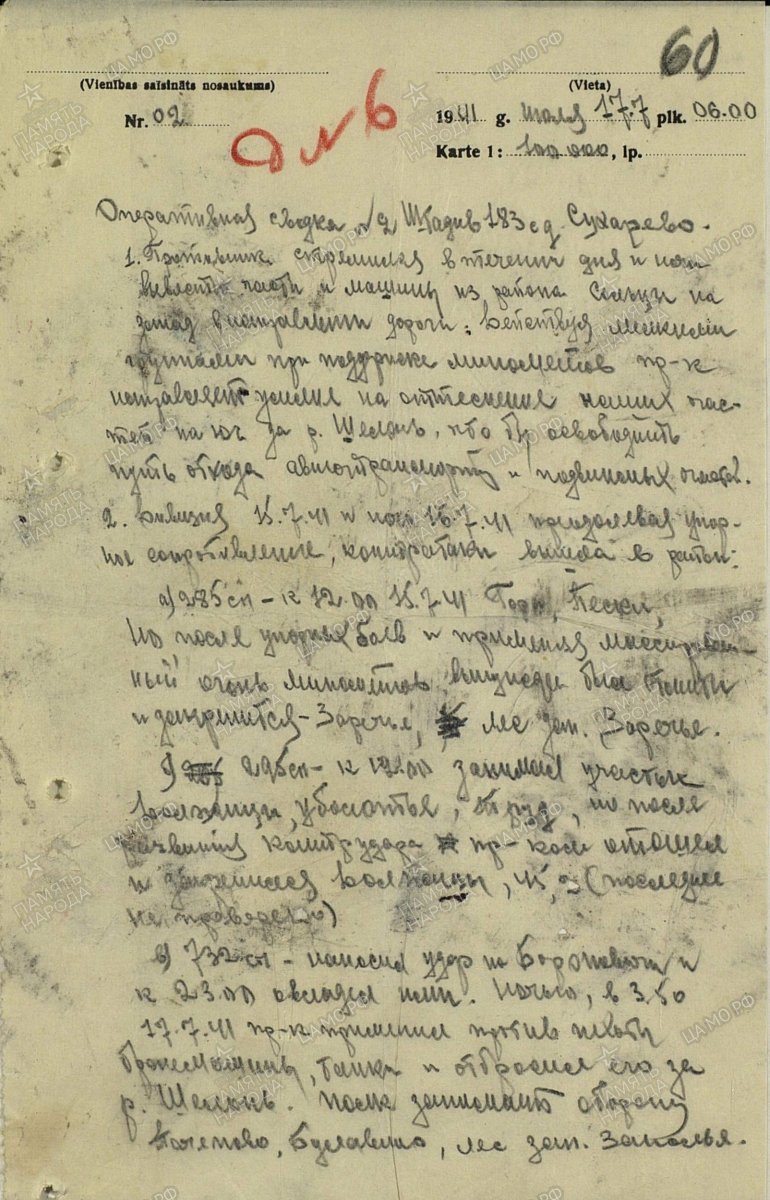 60
(Vienības saīsināts nosaukums)
(Vieta)
Nr. 02
Д N 6
1941 g. июля 17.7 plk. 06.00
Karte 1: 100 000, lp.
Оперативная сводка №2 Штадив 183 сд Сухарево.
1. Противник стремился в течении дня и ночи
вывести части и машины из района Сольцы на
запад в направлении дороги; действуя мелкими
группами при поддержке минометов пр-к
направляет усилия на оттеснение наших час-
тей на юг за р. Шелонь, что бы освободить
путь отхода автотранспорту и подвижных частей.
2. Дивизия 15.7.41 и ночь 16.7.41 преодолевая упор-
ное сопротивление, контратаки вышла в район:
а) 285 сп - к 12.00 15.7.41 Пески,
но после упорных боев и применения массирован-
ный огонь минометов вынужден был отойти
и закрепится - Заречье, лес зап. Заречье.
295 сп - к 12.00 занимал участок
, но после
развития контрудара пр-ком отошел
и закрепился (последнее
не проверено)
в) 732 сп - наносил удар на и
к 23.00 овладел ими. Ночью, в 3.50
17.7.41 пр-к применил против пехоты
бронемашины, танки и отбросил его за
р. Шелонь. Полк занимает оборону
лес зап. Заполья.
ПАМЯТЬ НАРОДА
ЦАМО.РФ